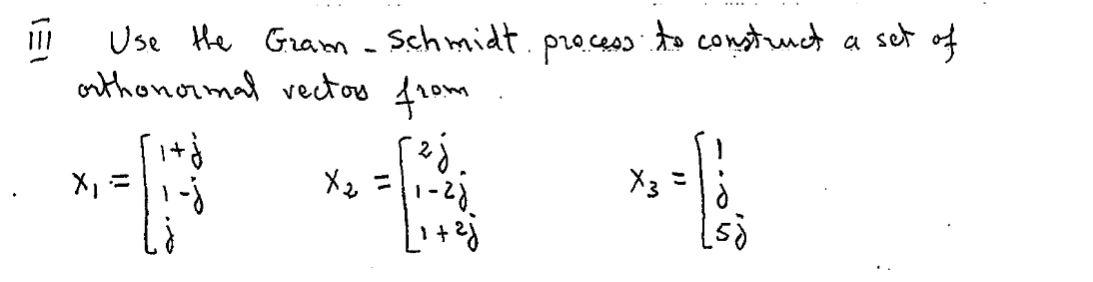 III Use the Gram - Schmidt process to construct a set of
orthonormal vectors from
X₁ = [1+j 1-j j] X₂ = [2j 1-2j 1+2j] X₃ = [1 j 5j]